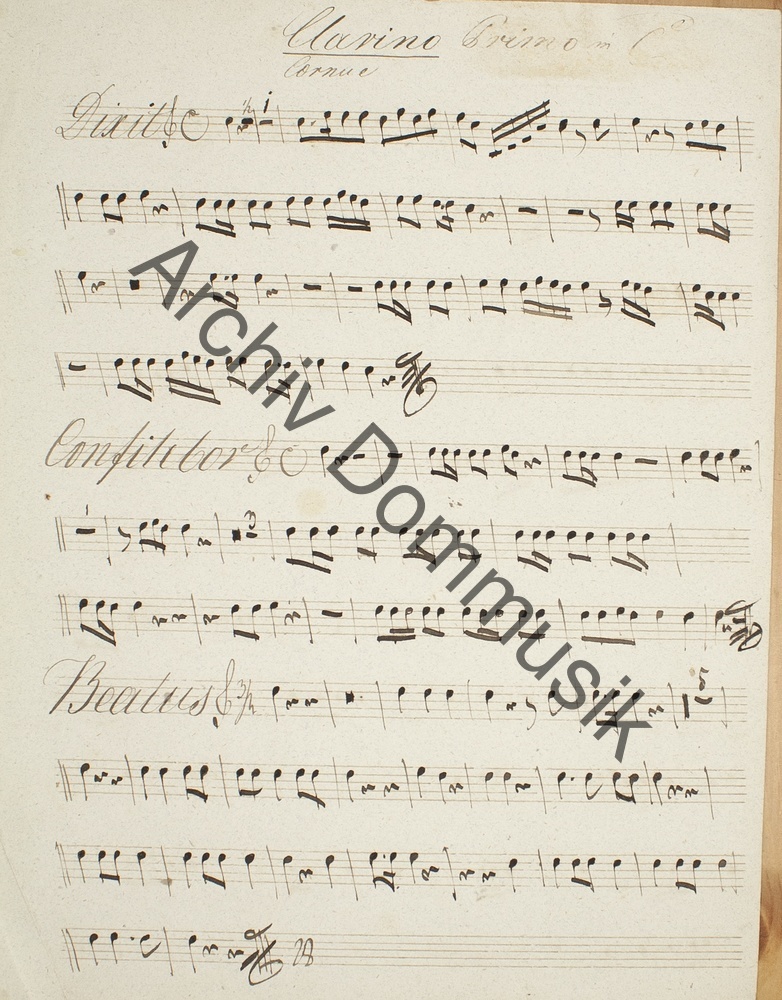 Clarino Primo in C
Cornue
Dixit
Confitebor
Beatus
28
Archiv Dommusik